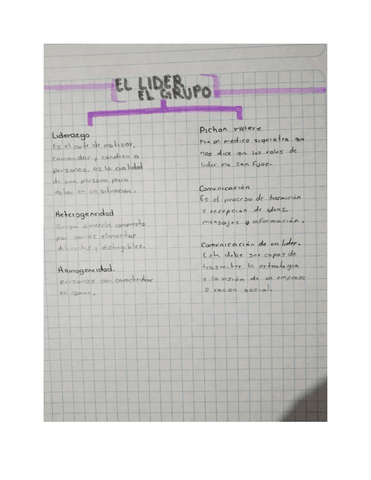 EL LIDER
EL GRUPO
Liderazgo
Es el arte de motivar,
comandar y conducir a
personas, es la cualidad
de una persona para
en un situacion.
Heterogeneidad
Grupo mezcla compuesto
por varios elementos
distinguibles.
Homogeneidad.
personas con caracteristicas
en comun.
Pichon riviere
Fue un medico siquiatra que
nos dice que los roles de
lider no son fijos.
Comunicación
Es el proceso de
y recepcion de ideas,
mensajes e información.
Comunicación de un Lider.
Este debe ser capas de
trasmitir la estrategia
y la visión de un empresa
o razon social.